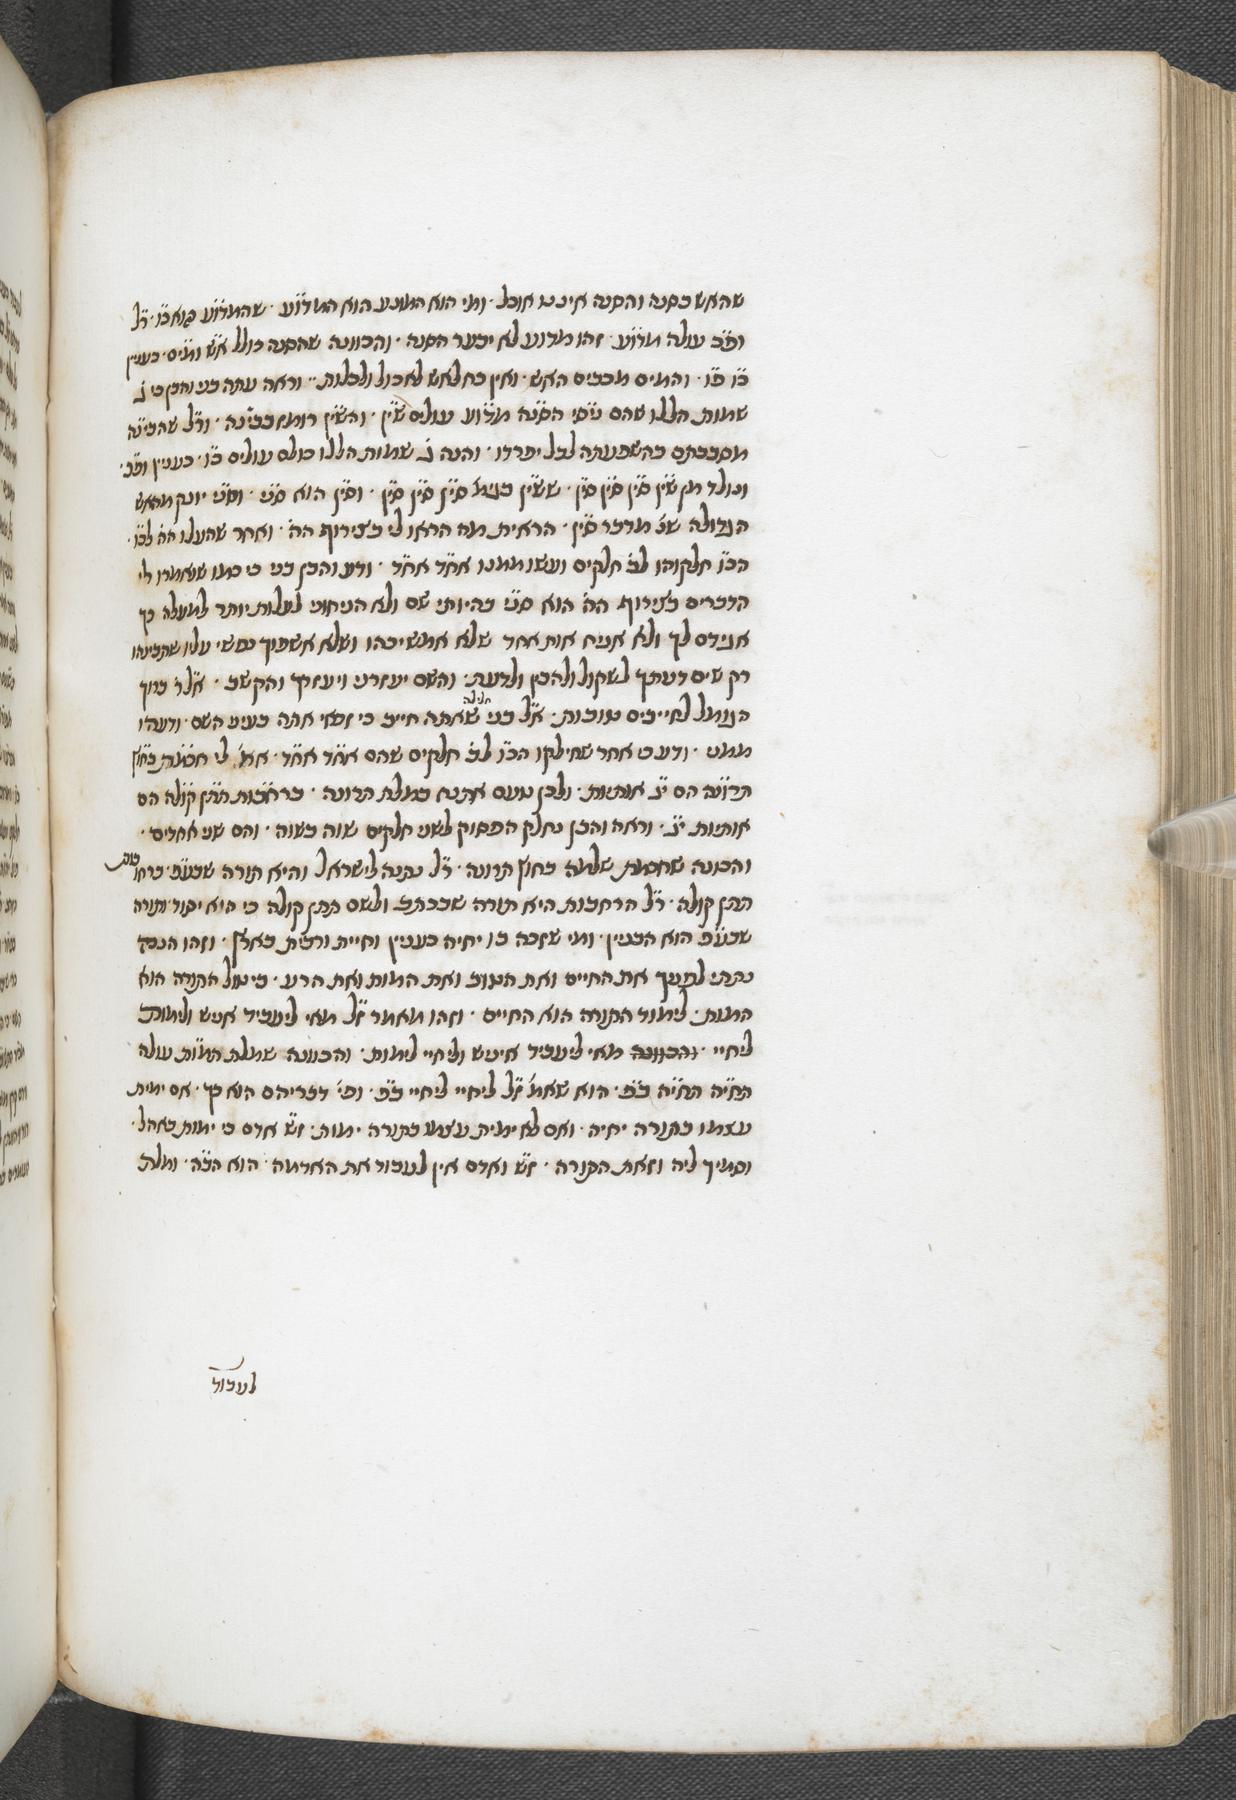 שהאש בסנה והסנה איננו אוכל · ומי הוא המונע הוא המדו״ע · שהמדו״ע
עולה מדו״ע · זהו מדוע לא יבער הסנה · והכוונה שהסנה כולל אש ומים · כענין
כ״ו · והמים מכבים האש · ואין כח לאש לאכול ולכלות · וראה עתה בני והבן כי
שמות הללו שהם הסנה מדוע עולים · והשין רומז לבינה · ור״ל שהבינה
מסבבתם בהשפעתה לבל יפרדו · והנה שמות הללו כולם עולים כ״ו · כענין
ונולד מן שין סין סין סין · ששין סין סין סין · וסין הוא · יונק מהאש
הגדולה מדבר סין · הראית מה הראו לי בצירוף הה · ואחר שהעלו
חלקוהו לב׳ חלקים ועשו ממנו אחד אחד · ודע והבן בני כי כמו שנאמרו לי
הדברים בצירוף הה הוא בהיותי שם ולא הניחוני לעלות יותר למעלה כך
לך ולא אניח אות אחד שלא אמשיכהו ושלא אשפוך נפשי עליו שתבינהו
רק שים דעתך לשקול ולהבין ולדעת · והשם יעזרני ויעזרך והקשב · ברוך
הגומל לחייבים טובות · א״ל בני חלילה שאתה חייב כי זכאי אתה בעיני השם
ממני · ודע כי אחר שחילקו הכ״ו לב׳ חלקים שהם אחד אחד · אמ׳ לי חכמות בחוץ
תרונה הם י״ג אותיות · ולכן טעם אתנח במלת תרונה · ברחבות תתן קולה הם
אותיות י״ג · וראה והבן נחלק הפסוק לשני חלקים שוה בשוה · והם שני אחדים ·
והכונה שחכמת שלמה בחוץ תרונה · ר״ל נתנה לישראל והיא תורה שבע״פ ברחובות
תתן קולה · ר״ל הרחבות היא תורה שבכתב ולשם תתן קולה כי היא יסוד ותורה
שבע״פ הוא הבנין · ומי שזכה בו יחיה בענין וחיית ורבית בארץ · וזהו הנה
נתתי לפניך את החיים ואת הטוב ואת המות ואת הרע · ביטול התורה הוא
המות · לימוד התורה הוא החיים · וזהו מאמר ז״ל מאי ליעביד איניש ולימות
ליחיי · והכוונה מאי ליעביד איניש וליחיי לימות · והכוונה שמלת המות עולה
החיה החיה ב״פ · הוא שאמ׳ ז״ל ליחיי ליחיי ב״פ · ופי׳ דבריהם הוא כך · אם ימית
עצמו בתורה יחיה · ואם לא ימית עצמו בתורה ימות · ז״ש אדם כי ימות באהל ·
וסמיך ליה וזאת התורה · ז״ש ואדם אין לעבוד את האדמה · הוא · ומלת
לעבוד